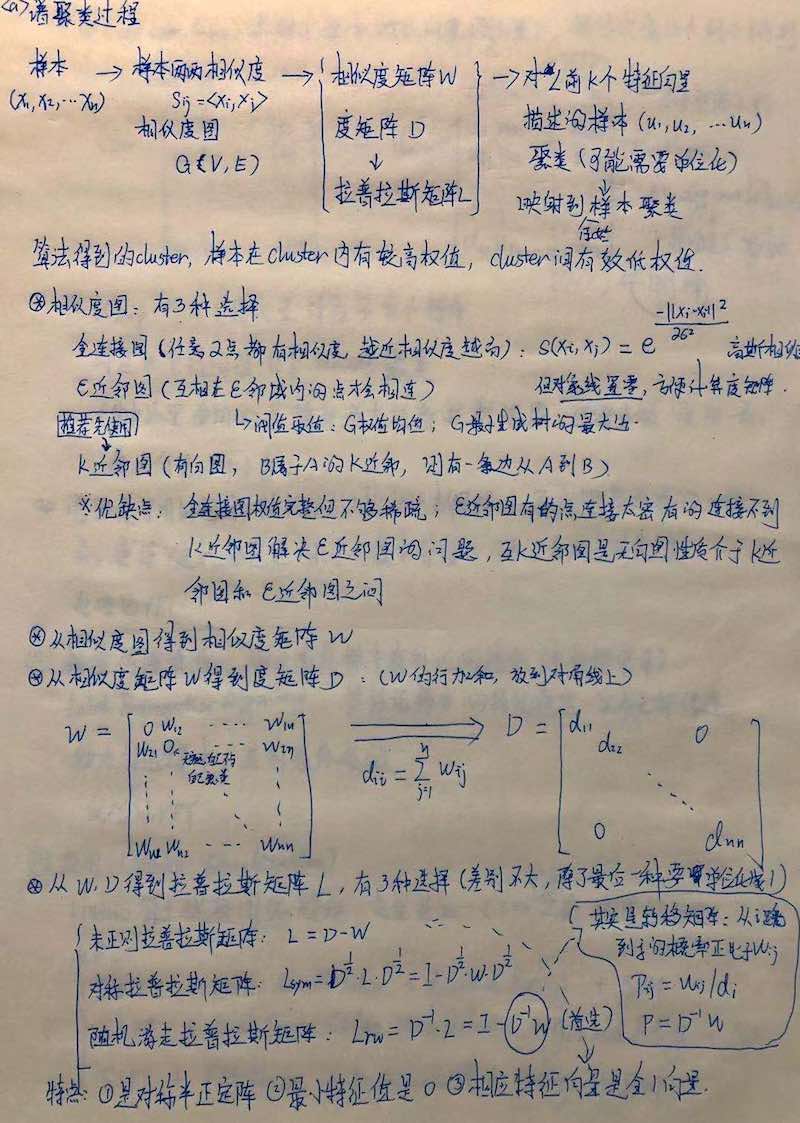 <a>谱聚类过程
样本 → 样本两两相似度 → 相似度矩阵W → 对L前K个特征向量
(x₁,x₂,…xₙ) Sij=<xi,xj> 度矩阵 D 描述的样本(u₁,u₂,…uₙ)
相似度图 ↓ 聚类(可能需要单位化)
G(V,E) 拉普拉斯矩阵L 映射到样本聚类
算法得到的cluster, 样本在cluster内有较高权值, cluster间有较低权值.
⊛相似度图: 有3种选择
全连接图(任意2点都有相似度, 越近相似度越高): S(xi,xj) = e^(-||xi-xj||²/2σ²) 高斯相似
ε近邻图(互相在ε邻域内的点才会相连) 但对角线置零, 方便计算度矩阵.
推荐先使用 ↳阈值取值: G权值均值; G最小生成树的最大边.
K近邻图(有向图, B属于A的K近邻, 则有一条边从A到B)
※优缺点: 全连接图权值完整但不够稀疏; ε近邻图有的点连接太密有的连接不到
K近邻图解决ε近邻图的问题, 互K近邻图是无向图性质介于K近
邻图和ε近邻图之间
⊛从相似度图得到相似度矩阵W
⊛从相似度矩阵W得到度矩阵D: (W的行加和, 放到对角线上)
W = [0 W₁₂ ---- W₁ₙ ⟹ D = [d₁₁ 0
W₂₁ 0 ---- W₂ₙ d₂₂
dii = Σ(j=1..n) Wij
Wₙ₂ --- Wₙₙ] 0 dₙₙ]
⊛从W.D得到拉普拉斯矩阵L, 有3种选择(差别不大, 除了最后一种要单位化
未正则拉普拉斯矩阵: L = D-W
对称拉普拉斯矩阵: Lsym = D^½·L·D^½ = I-D^½·W·D^½
随机游走拉普拉斯矩阵: Lrw = D⁻¹·L = I-D⁻¹W (首选)
其实是转移矩阵: 从i跳
到j的概率正比于Wij
Pij = Wij/di
P = D⁻¹W
特点: ①是对称半正定阵 ②最小特征值是0 ③相应特征向量是全1向量.